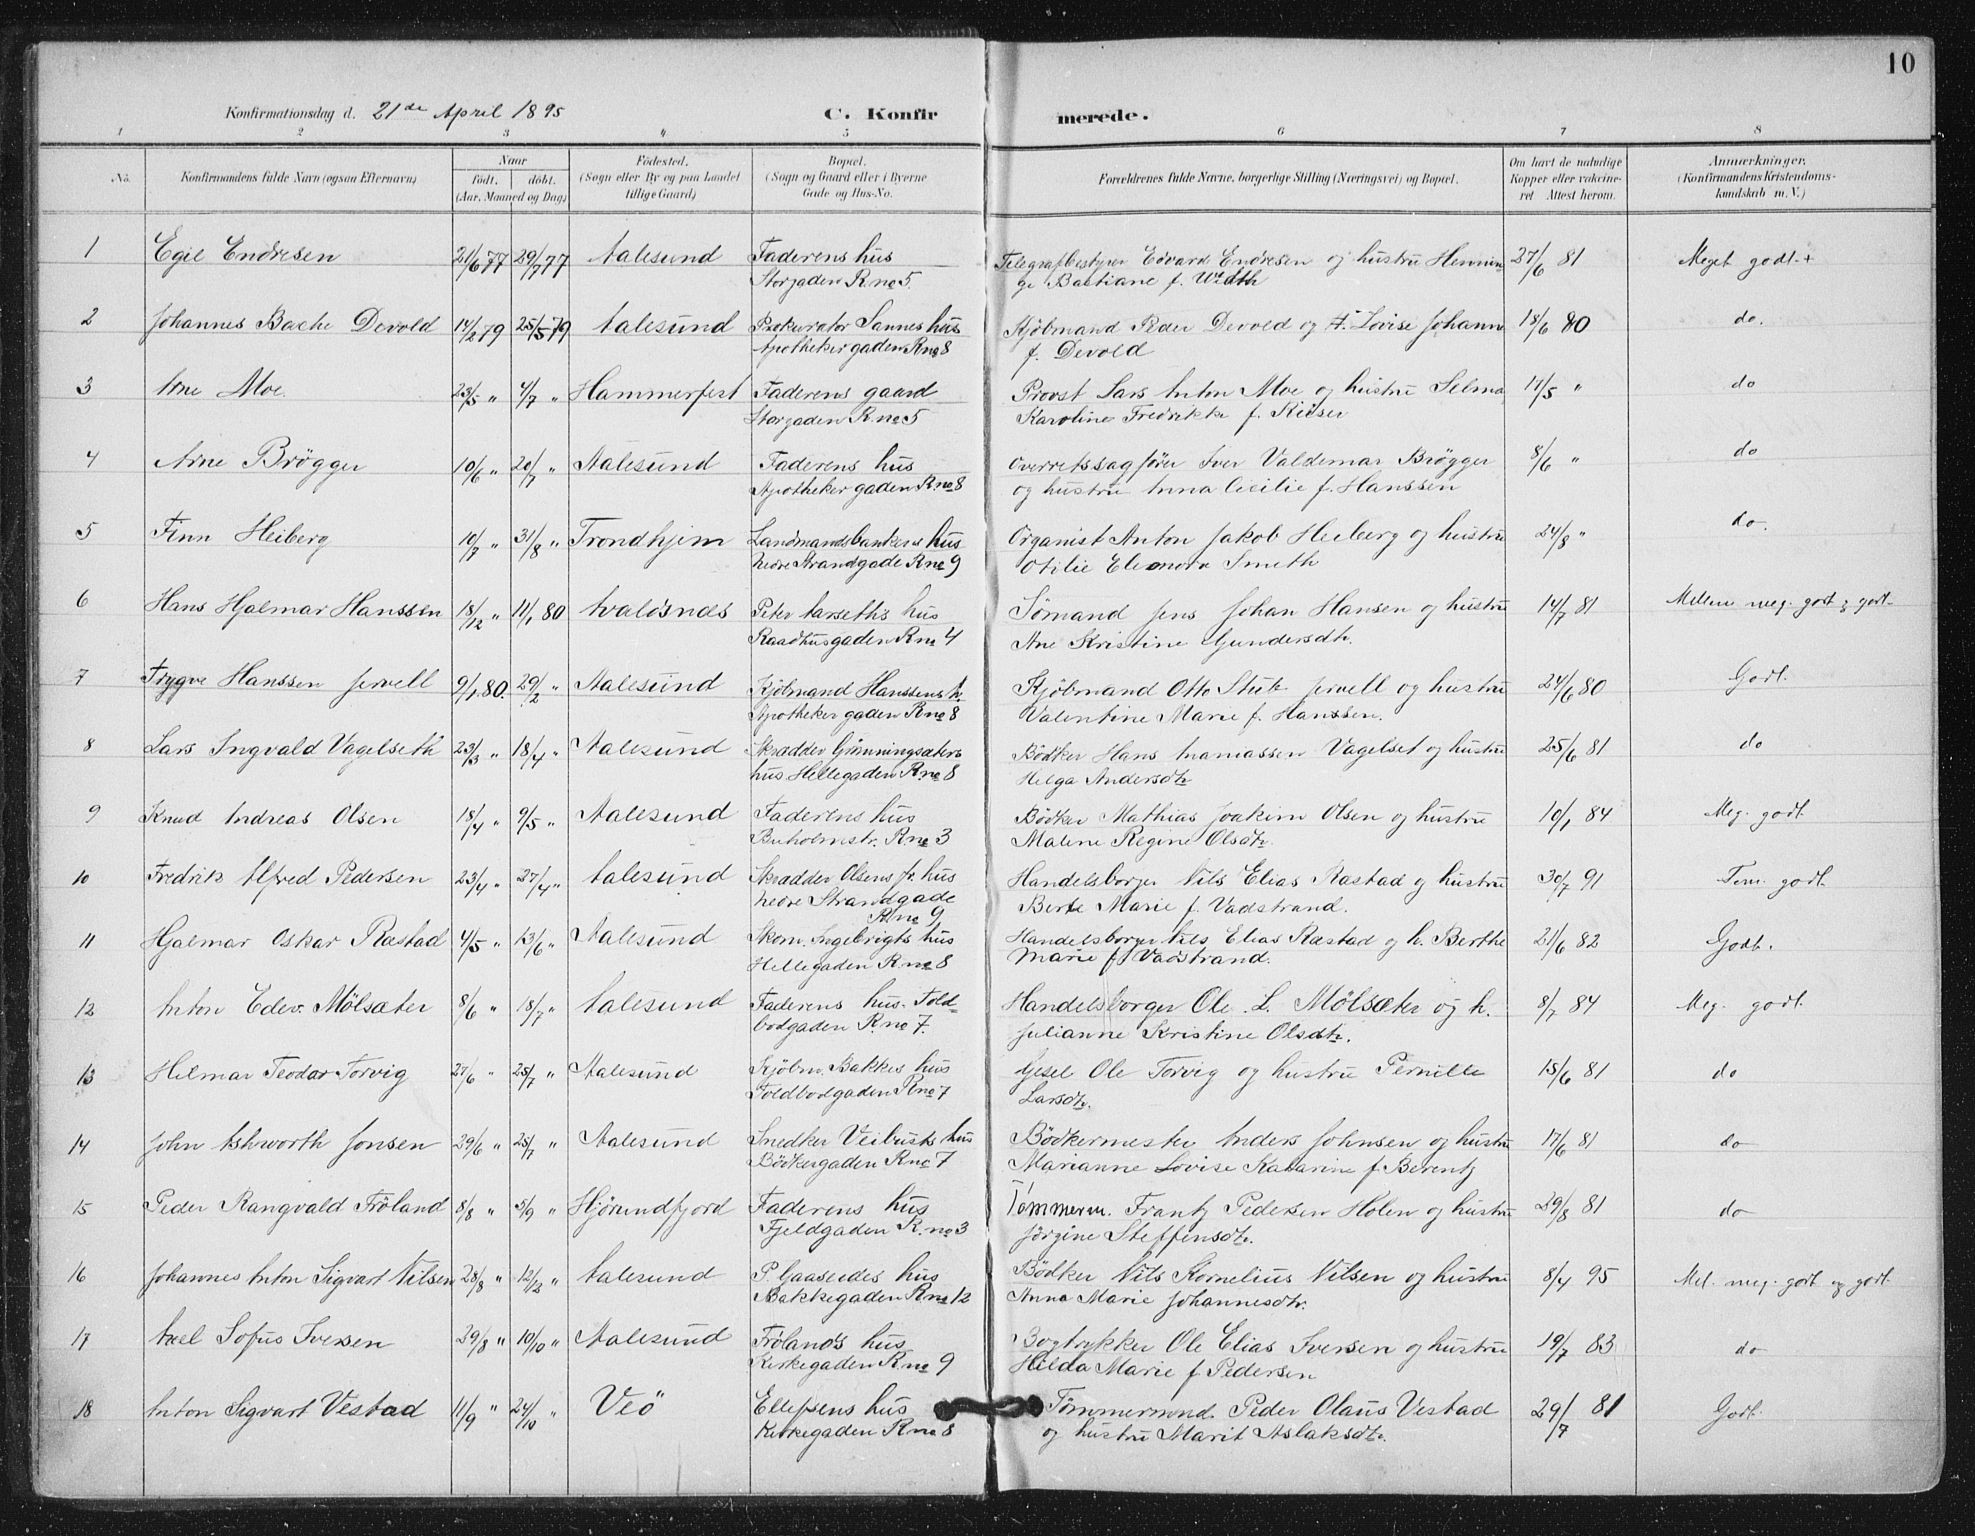 10
Konfirmationsdag d. 21de April 1895 C. Konfirmerede.
1 2 3 4 5 6 7 8
No. Konfirmandens fulde Navn (ogsaa Efternavn) Naar født. døbt. (Aar, Maaned og Dag) Fødested. (Sogn eller By og paa Landet tillige Gaard) Bopæl. (Sogn og Gaard eller i Byerne Gade og Hus-No. Forældrenes fulde Navne, borgerlige Stilling (Næringsvei) og Bopæl. Om havt de naturlige Kopper eller vakcineret Attest herom. Anmærkninger. (Konfirmandens Kristendomskundskab m. V.)
1 Egil Endresen 21/6 77 29/7 77 Aalesund Faderens hus Telegrafbestyrer Edvard Endresen og hustru Hennin 27/6 81 Meget godt +
Storgaden R. no 5. ge Bastiane f.
2 Johannes Bache Devold 14/2 79 25/5 79 Aalesund Prokurator Sannes hus Kjøbmand Peder Devold og H. Lovise Johann 18/6 80 do.
Apothekergaden R no 8 f. Devold
3 Arne Moe. 23/5 " 4/7 " Hammerfest Faderens gaard Provst Lars Anton Moe og hustru Selma 17/5 " do
Storgaden R. no 5 Karoline Fredrikke f.
4 Arne Brøgger 10/6 " 20/7 " Aalesund Faderens hus Overretssagfører Iver Valdemar Brøgger 8/6 " do
Apothekergaden R. no 8 og hustru Anna Cecilie f. Hanssen
5 Finn Heiberg 10/7 " 31/8 " Trondhjem Landmandsbankens hus Organist Anton Jakob Heiberg og hustru 24/8 " do.
nedre Strandgade R no 9 Otilie Eleonora Smith
6 Hans Hjalmar Hanssen 18/12 " 11/1 80 Avaløsnæs Peter Aarseths hus Sømand Jens Johan Hansen og hustru 14/7 81 Mellem meg. godt og godt
Raadhusgaden R no 4 Ane Kristine Gundersdtr.
7 Trygve Hanssen Jervell 9/1 80. 29/2 " Aalesund Kjøbmand Hanssens h. Kjøbmand Otto Stub Jervell og hustru 24/6 80 Godt.
Apothekergaden R no 8 Valentine Marie f. Hanssen.
8 Lars Ingvald Vagelseth 23/3 " 18/4 " Aalesund Skrædder Grønningsæters Bødker Hans Ananiassen Vagelset og hustru 25/6 81 do
hus Hellegaden R. no 8 Helga Andersdtr
9 Knud Andreas Olsen 18/4 " 9/5 " Aalesund Faderens hus Bødker Mathias Joakim Olsen og hustru 10/1 84 Meg. godt.
Buholmstr. R no 3 Malene Regine Olsdtr.
10 Fredrik Alfred Pedersen 23/4 " 27/4 " Aalesund Skrædder Olsens jr. hus Handelsborger Nils Elias Rastad og hustru 30/7 91 Tem. godt.
nedre Strandgade Berte Marie f. Vadstrand.
R no 9
11 Hjalmar Oskar Rastad 4/5 " 13/6 " Aalesund Skom. Ingebrigts hus Handelsborger Nils Elias Rastad og h. Berthe 21/6 82 Godt.
Hellegaden R no 8 Marie f. Vadstrand.
12 Anton Edev. Mølsæter 8/6 " 18/7 " Aalesund Faderens hus. Told- Handelsborger Ole L. Mølsæter og h. 8/7 84 Meg. godt.
bodgaden R. no 7. Julianne Kristine Olsdtr.
13 Hilmar Teodar Torvig 27/6 " 25/7 " Aalesund Kjøbm. Bakkes hus Gjesel Ole Torvig og hustru Pernille 15/6 81 do
Toldbodgaden R no 7 Larsdtr.
14 John Ashworth Jonsen 29/6 " 25/7 " Aalesund Snedker Veibusts hus Bødkermester Anders Johnsen og hustru 17/6 81 do
Bødkergaden R no 7 Marianne Lovise Katarine f. Berentz
15 Peder Rangvald Frøland 8/8 " 5/9 " Hjørundfjord Faderens hus Tømmerm. Frantz Pedersen Holen og hustru 29/8 81 do
Fjeldgaden R. no 3 Jørgine Steffensdtr.
16 Johannes Anton Sigvart Nilsen 28/8 " 12/12 " Aalesund P. Gaaseides hus Bødker Nils Kornelius Nilsen og hustru 8/4 95 Mel. meg. godt og godt.
Bakkegaden R no 12 Anna Marie Johannesdtr.
17 Axel Sofus Iversen 29/8 " 10/10 " Aalesund Frølands hus Bogtrykker Ole Elias Iversen og hustru 19/7 83 do
Kirkegaden R no 9 Hilda Marie f Pedersen
18 Anton Sigvart Vestad 11/9 " 24/10 " Veø Ellefsens hus Tømmermand Peder Olaus Vestad 29/7 81 Godt.
Kirkegaden R no 8 og hustru Marit Aslaksdtr.